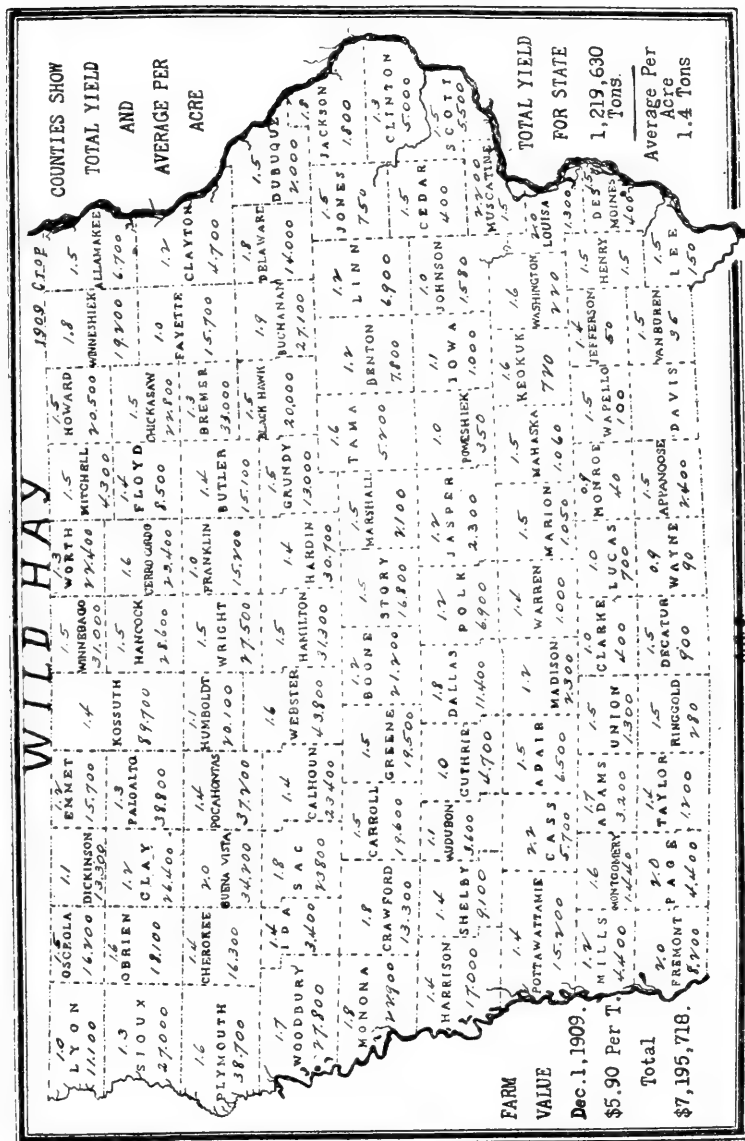 WILD HAY
1909 CROP
COUNTIES SHOW
TOTAL YIELD
AND
AVERAGE PER
ACRE
1.0
LYON
11.100
1.5
OSCEOLA
16.200
1.1
DICKINSON
13.300
1.2
EMMET
15.700
1.5
WINNEBAGO
31.000
1.3
WORTH
22.400
1.5
MITCHELL
4.300
1.5
HOWARD
20.500
1.8
WINNESHIEK
19.200
1.5
ALLAMAKEE
6.700
1.3
SIOUX
27.000
1.6
OBRIEN
18.100
1.2
CLAY
26.400
1.3
PALO ALTO
38.800
1.4
KOSSUTH
89.700
1.5
HANCOCK
28.600
1.6
CERRO GORDO
23.400
1.4
FLOYD
8.500
1.5
CHICKASAW
22.800
1.0
FAYETTE
15.700
1.2
CLAYTON
4.700
1.6
PLYMOUTH
38.700
1.4
CHEROKEE
16.300
2.0
BUENA VISTA
34.200
1.4
POCAHONTAS
37.200
1.1
HUMBOLDT
20.100
1.5
WRIGHT
27.500
1.0
FRANKLIN
15.200
1.4
BUTLER
15.100
1.3
BREMER
33.000
1.7
WOODBURY
27.800
1.4
IDA
3.400
1.8
SAC
23800
1.4
CALHOUN
23.400
1.6
WEBSTER
43.800
1.5
HAMILTON
31.300
1.4
HARDIN
30.700
1.5
GRUNDY
13.000
1.5
BLACK HAWK
20,000
1.9
BUCHANAN
27.100
1.8
DELAWARE
14.000
1.5
DUBUQUE
2.000
1.8
MONONA
22900
1.8
CRAWFORD
13.300
1.5
CARROLL
19.600
1.5
GREENE
19.500
1.2
BOONE
21.200
1.5
STORY
16.800
1.5
MARSHALL
2.100
1.6
TAMA
5.200
1.2
BENTON
7.800
1.2
LINN
6.900
1.5
JONES
750
1.8
JACKSON
1.800
1.3
CLINTON
5.000
1.4
HARRISON
17.000
1.4
SHELBY
9.100
1.1
AUDUBON
3.600
1.0
GUTHRIE
4.700
1.8
DALLAS
11.400
1.2
POLK
6.900
1.2
JASPER
2.300
1.0
POWESHIEK
350
1.1
IOWA
1.000
1.0
JOHNSON
1.580
1.5
CEDAR
400
1.5
SCOTT
5.500
2.200
MUSCATINE
1.5
1.4
POTTAWATTAMIE
15.200
2.2
CASS
5.700
1.5
ADAIR
6.500
1.2
MADISON
2.300
1.4
WARREN
1.000
1.5
MARION
1.050
1.5
MAHASKA
1.060
1.6
KEOKUK
720
1.6
WASHINGTON
220
2.0
LOUISA
1.300
1.2
MILLS
4.400
1.6
MONTGOMERY
1.440
1.7
ADAMS
3.200
1.5
UNION
1.300
1.0
CLARKE
400
1.0
LUCAS
700
0.9
MONROE
40
1.5
WAPELLO
100
1.4
JEFFERSON
50
1.5
HENRY
1.5
1.5
DES
MOINES
400
2.0
FREMONT
8.200
2.0
PAGE
4.400
1.4
TAYLOR
1.200
1.5
RINGGOLD
280
1.5
DECATUR
900
0.9
WAYNE
90
1.5
APPANOOSE
2.400
DAVIS
1.5
VAN BUREN
1.5
LEE
150
TOTAL YIELD
FOR STATE
1,219,630
Tons.
Average Per
Acre
1.4 Tons
FARM
VALUE
Dec.1,1909.
$5.90 Per T.
Total
$7,195,718.